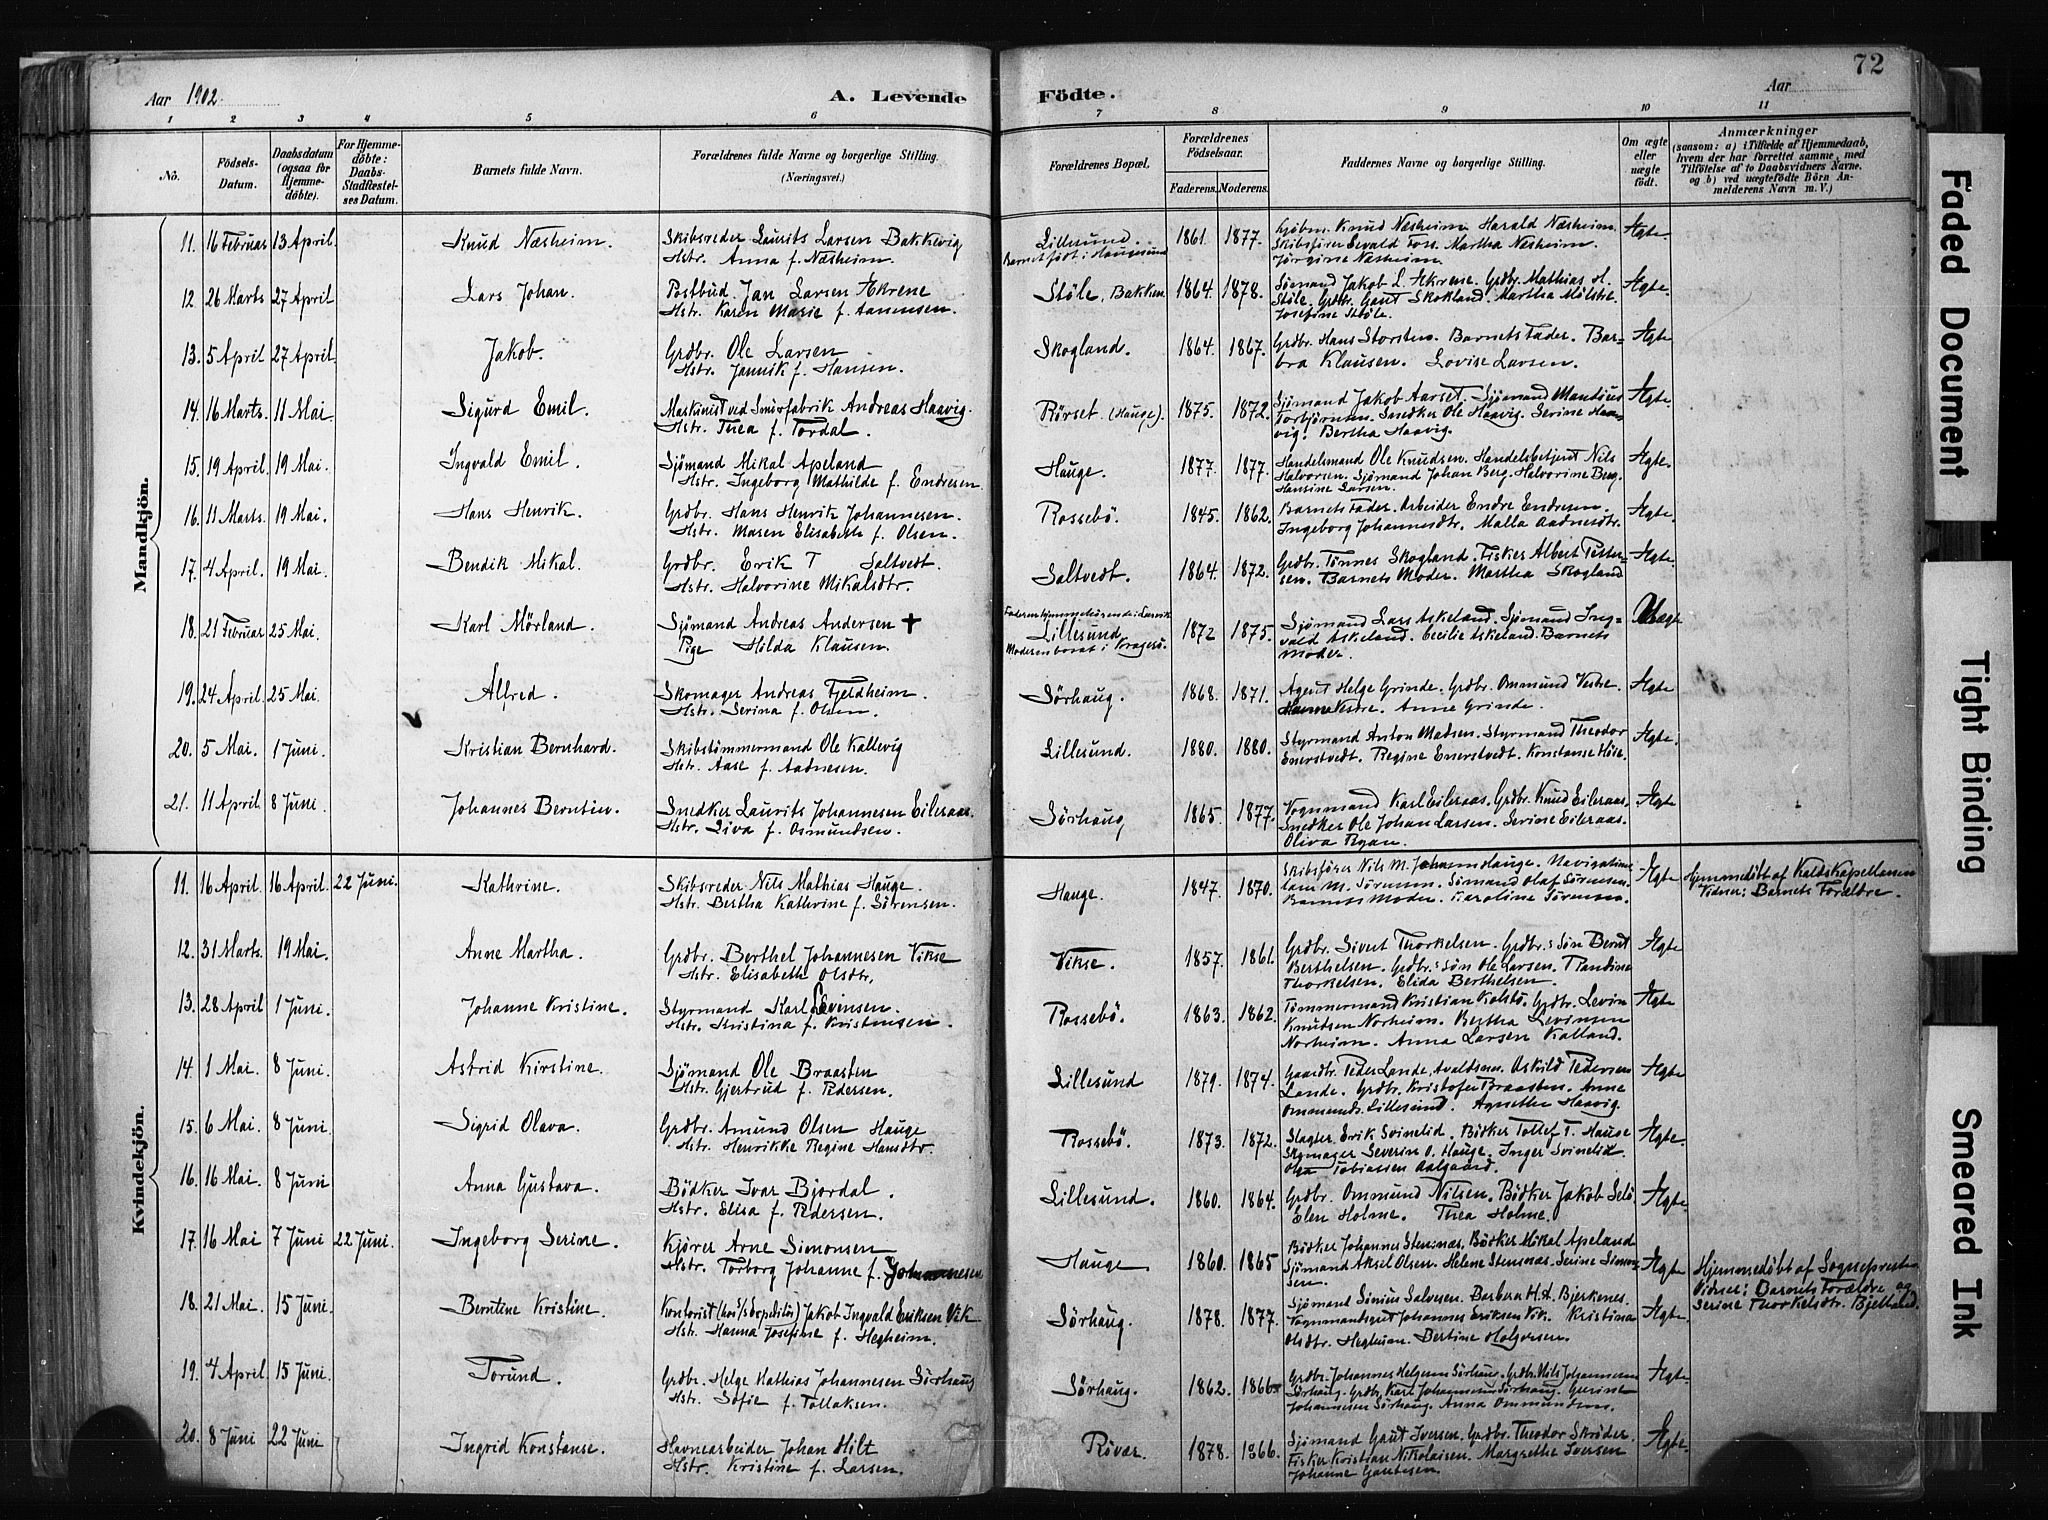 72
Aar 1902
A. Levende Födte.
Aar
1 2 3 4 5 6 7 8 9 10 11
No.
Födsels-Datum.
Daabsdatum (ogsaa for Hjemmedöbte).
For Hjemmedöbte: Daabs-Stadfæstelses Datum.
Barnets fulde Navn.
Forældrenes fulde Navne og borgerlige Stilling.
(Næringsvei.)
Forældrenes Bopæl.
Forældrenes Födselsaar.
Faderens. Moderens.
Faddernes Navne og borgerlige Stilling.
Om ægte eller uægte födt.
Anmærkninger
(saasom: a) i Tilfælde af Hjemmedaab, hvem der har forrettet samme, med Tilföielse af to Daabsvidners Navne. og b) ved uægtefödte Börn Anmelderens Navn m. V.)
Mandkjön.
11. 16 Februar 13 April. Knud Næsheim. Skibsreder Laurits Larsen Bakkevig
Hstr. Anna f. Næsheim.
Lillesund.
Barnet født i Haugesund
1861. 1877. Knud Næsheim. Harald Næsheim.
Skibsfører Sevald Foss. Martha Næsheim.
Jørgine Næsheim.
Ægte.
12. 26 Marts 27 April Lars Johan. Postbud. Jan LarsenÆkrene
Hstr. Karen Marie f. Aanensen.
Støle, Bakken 1864. 1878. Sømand Jakob L. Ækrene. Grdbr. Mathias H.
Støle. Grdbr. Gaut Skokland. Martha Mølstre.
Josefine Støle.
Ægte.
13. 5 April 27 April Jakob. Grdbr. Ole Larsen
Hstr. Jannik f. Hansen.
Skogland. 1864. 1867. Grdbr. Hans Storsten. Barnets Fader. Bar-
bra Klausen. Lovise Larsen.
Ægte
14. 16 Marts. 11 Mai Sigurd Emil. Maskinist ved Smørfabrik Andreas Haavig.
Hstr. Thea f. Tordal.
Rørset (Hauge). 1875. 1872. Sjømand Jakob Aarset. Sjømand Mandius
Torbjørnsen. Snedker Ole Haavig. Serine Haa-
vig. Bertha Haavig.
Ægte.
15. 19 April. 19 Mai. Ingvald Emil. Sjømand Mikal Apeland
Hstr. Ingeborg Mathilde f. Endresen.
Hauge. 1877. 1877. Handelsmand Ole Knudsen. Handelsbetjent Nils
Halvorsen. Sjømand Johan Berg. Halvorine Berg.
Hansine Larsen.
Ægte.
16. 11 Marts. 19 Mai. Hans Henrik. Grdbr. Hans Henrik Johannesen.
Hstr. Maren Elisabeth f. Olsen.
Rossebø. 1845. 1862. Barnets Fader. Arbeider Endre Endresen.
Ingeborg Johannesdtr. Malla Aadnesdtr.
Ægte.
17. 4 April. 19 Mai. Bendik Mikal. Grdbr. Erik T Saltvedt.
Hstr. Halvorine Mikalsdtr.
Saltvedt. 1864. 1872. Grdbr. Tønnes Skogland. Fisker Albert Petter-
sen. Barnets Moder. Martha Skogland
Ægte
18. 21 Februar 25 Mai. Karl Mørland. Sjømand Andreas Andersen ✝
Pige Hilda Klausen.
Faderen hjemmehørende i Larvik
Lillesund
Moderen bosat i Kragerø.
1872 1875. Sjømand Lars Askeland. Sjømand Ing-
vald Askeland. Cecilie Askeland. Barnets
Moder.
Uægte
19. 24 April. 25 Mai. Alfred. Skomager Andreas Fjeldheim.
Hstr. Serina f. Olsen.
Sørhaug. 1868. 1871. Agent Helge Grinde. Grdbr. Ommund Vestre.
Hanna Vestre. Anne Grinde.
Ægte
20. 5 Mai. 1 Juni. Kristian Bernhard. Skibstømmermand Ole Kallevig
Hstr. Aase f. Aadnesen.
Lillesund. 1880. 1880. Styrmand Anton Madsen. Styrmand Theodor
Enerstvedt. Regine Enerstvedt. Konstanse Hise.
Ægte.
21. 11 April. 8 Juni. Johannes Berntin. Snedker Laurits Johannesen Eileraas.
Hstr. Siva f. Osmundsen.
Sørhaug 1865. 1877. Vognmand Karl Eileraas. Grdbr. Knud Eileraas.
Snedker Ole Johan Larsen. Serine Eileraas.
Oliva Ryan.
Ægte.
Kvindekjön.
11. 16 April. 16 April. 22 Juni. Kathrine. Skibsreder Nils Mathias Hauge.
Hstr. Bertha Kathrine f. Sørensen.
Hauge. 1847. 1870. Skibsfører Nils M. Hauge. Navigations
M. Sørensen. Sømand Olaf Sørensen.
Barnets Moder. Karoline Sørensen.
Ægte Hjemmedøbt af Kaldskapellanen
Vidner: Barnets Forældre.
12. 31 Marts. 19 Mai. Anne Martha. Grdbr. Berthel Johannesen Vikse
Hstr. Elisabeth Olsdtr.
Vikse. 1857. 1861. Grdbr. Sivert Thorkelsen. Grdbr: Søn Bernt
Berthelsen. Grdbr: Søn Ole Larsen. Randine
Thorkelsen. Elida Berthelsen.
Ægte
13. 28 April 1 Juni. Johanne Kristine. Styrmand Karl Levinsen.
Hstr. Kristina f. Kristensen.
Rossebø. 1863. 1862. Tømmermand Kristian Kolstø. Grdbr. Levin
Knudsen Norheim. Bertha Levinsen
Norheim. Anna Larsen Kalland.
Ægte
14. 1 Mai. 8 Juni. Astrid Kirstine. Sjømand Ole Braasten
Hstr. Gjertrud f. Pedersen.
Lillesund 1879. 1874. Gaardbr. Peder Lande, Avaldsnes. Oskild Pedersen
Lande. Grdbr. Kristofer Braasten. Anne
Ommunds. Lillesund. Agnethe Haavig.
Ægte
15. 6 Mai. 8 Juni. Sigrid Olava. Grdbr. Amund Olsen Hauge
Hstr. Henrikke Regine Hansdtr.
Rossebø. 1873. 1872. Slagter. Erik Svinelid. Bødker Tollef T. Hauge
Skomager Severin O. Hauge. Inger Svinelid.
Tobiasen Aalgaard.
Ægte.
16. 16 Mai. 8 Juni Anna Gustava. Bødker Ivar Bjordal.
Hstr. Elisa f. Pedersen.
Lillesund. 1860. 1864. Grdbr. Ommund Nilsen. Bødker Jakob Selø
Elen Holme. Thea Holme.
Ægte.
17. 16 Mai 7 Juni 22 Juni. Ingeborg Serine. Kjører Arne Simonsen
Hstr. Torborg Johanne f. Johannesen
Hauge 1860. 1865 Bødker Johannes Stensnæs. Bødker Mikal Apeland
Sjømand Aksel Olsen. Helene Stensnæs. Serine Simon-
sen.
Ægte Hjemmedøbt af Sognepresten
Vidner: Barnets Forældre og
Serine Thorkelsdtr. Bjelland.
18. 21 Mai. 15 Juni. Berntine Kristine. Kontorist (hos Expeditør) Jakob Ingvald Eriksen Vik
Hstr. Hanna Josefine f. Hegheim.
Sørhaug. 1878. 1877. Sjømand Sivius Salvesen. Barbara H.A. Bjerkenes.
Vognmandsgut Johannes Eriksen Vik. Kristina
Olsdtr. Hegheim. Bertine Holgersen.
Ægte.
19. 4 April. 15 Juni. Torund. Grdbr. Helge Mathias Johannesen Sørhaug
Hstr. Sofie f. Tollaksen.
Sørhaug. 1862. 1866. Grdbr. Johannes Helgesen Sørhaug. Grdbr. Nils Johannesen
Sørhaug. Grdbr. Karl Johannesen Sørhaug. Gurine
Johannesen Sørhaug. Anna Ommundsen.
Ægte.
20. 8 Juni 22 Juni Ingvid Konstanse. Havnearbeider Johan Hilt
Hstr. Kristine f. Larsen.
Røvær. 1878. 1866. Sjømand Gaut Iversen. Grdbr. Theodor Skrøder.
Fisker Kristian Nikolaisen. Margrethe Iversen
Johanne Gautesen.
Ægte.
Faded Document
Tight Binding
Smeared Ink